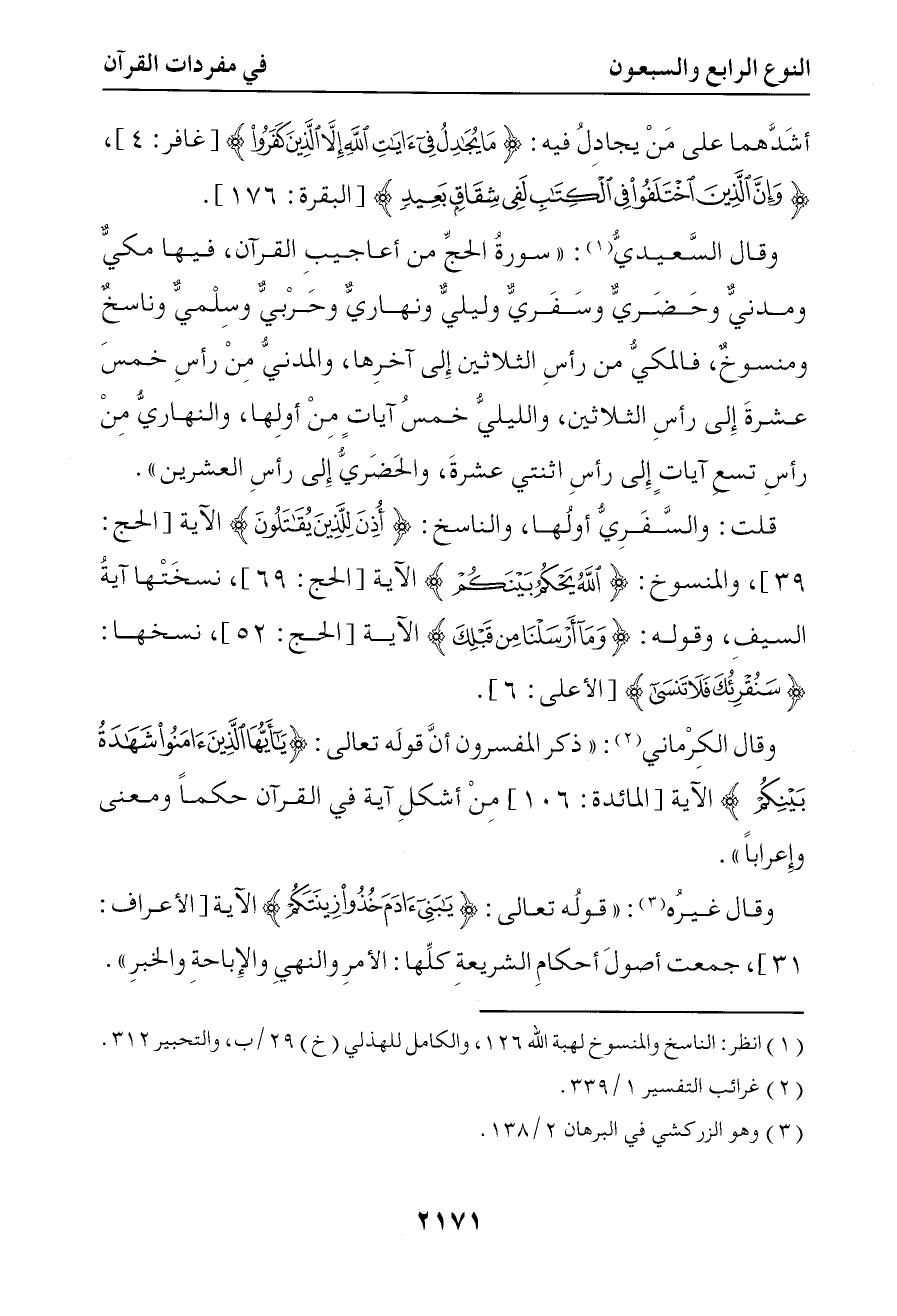 النوع الرابع والسبعون في مفردات القرآن
أشدَّهما على مَنْ يجادلُ فيه: ﴿ مَا يُجَادِلُ فِىٓ ءَايَاتِ ٱللَّهِ إِلَّا ٱلَّذِينَ كَفَرُوا۟ ﴾ [ غافر: ٤ ]،
﴿ وَإِنَّ ٱلَّذِينَ ٱخْتَلَفُوا۟ فِى ٱلْكِتَابِ لَفِى شِقَاقٍ بَعِيدٍ ﴾ [ البقرة: ١٧٦ ].
وقال السَّعيديُّ(١): « سورةُ الحجِّ من أعاجيبِ القرآن، فيها مكيٌّ
ومدنيٌّ وحَضَريٌّ وسَفَريٌّ وليليٌّ ونهاريٌّ وحَرْبيٌّ وسِلْميٌّ وناسخٌ
ومنسوخٌ، فالمكيُّ من رأسِ الثلاثين إلى آخرِها، والمدنيُّ منْ رأسِ خمسَ
عشرةَ إلى رأسِ الثلاثين، والليليُّ خمسُ آياتٍ منْ أولها، والنهاريُّ منْ
رأسِ تسعِ آياتٍ إلى رأسِ اثنتي عشرةَ، والحَضَريُّ إلى رأسِ العشرين».
قلت: والسَّفَريُّ أولُها، والناسخ: ﴿ أُذِنَ لِلَّذِينَ يُقَاتَلُونَ ﴾ الآية [ الحج:
٣٩ ]، والمنسوخ: ﴿ ٱللَّهُ يَحْكُمُ بَيْنَكُمْ ﴾ الآية [ الحج: ٦٩ ]، نسخَتْها آيةُ
السيف، وقوله: ﴿ وَمَآ أَرْسَلْنَا مِن قَبْلِكَ ﴾ الآيــة [ الحج: ٥٢ ]، نسخها:
﴿ سَنُقْرِئُكَ فَلَا تَنسَىٰٓ ﴾ [ الأعلى: ٦ ].
وقال الكِرْماني(٢): « ذكر المفسرون أنَّ قولَه تعالى: ﴿ يَـٰٓأَيُّهَا ٱلَّذِينَ ءَامَنُوا۟ شَهَادَةُ
بَيْنِكُمْ ﴾ الآية [ المائدة: ١٠٦ ] مِنْ أشكلِ آية في القرآن حكماً ومعنى
وإعراباً».
وقال غيرُه(٣): « قولُه تعالى: ﴿ يَـٰبَنِىٓ ءَادَمَ خُذُوا۟ زِينَتَكُمْ ﴾ الآية [ الأعراف:
٣١ ]، جمعت أصولَ أحكامِ الشريعةِ كلِّها: الأمرِ والنهيِ والإباحةِ والخبرِ».
(١) انظر: الناسخ والمنسوخ لهبة الله ١٢٦، والكامل للهذلي ( خ ) ٢٩/ب، والتحبير ٣١٢.
(٢) غرائب التفسير ١/ ٣٣٩.
(٣) وهو الزركشي في البرهان ٢/ ١٣٨.
٢١٧١